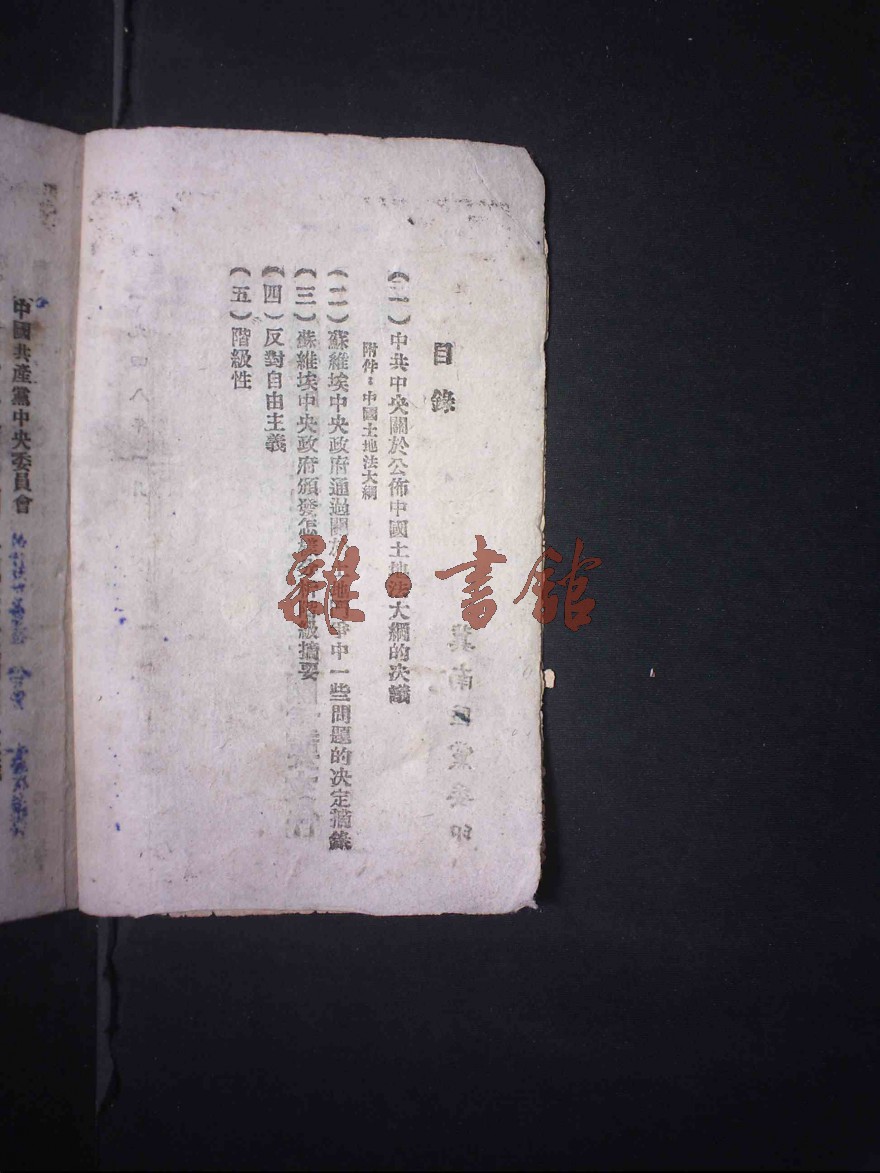 目錄
（一）中共中央關於公佈中國土地法大綱的決議
附件：中國土地法大綱
（二）蘇維埃中央政府通過關於土地鬥爭中一些問題的決定摘錄
（三）蘇維埃中央政府頒發怎樣分析階級摘要
（四）反對自由主義
（五）階級性
冀南區黨委印
一九四八年一月
中國共產黨中央委員會
雜·書館